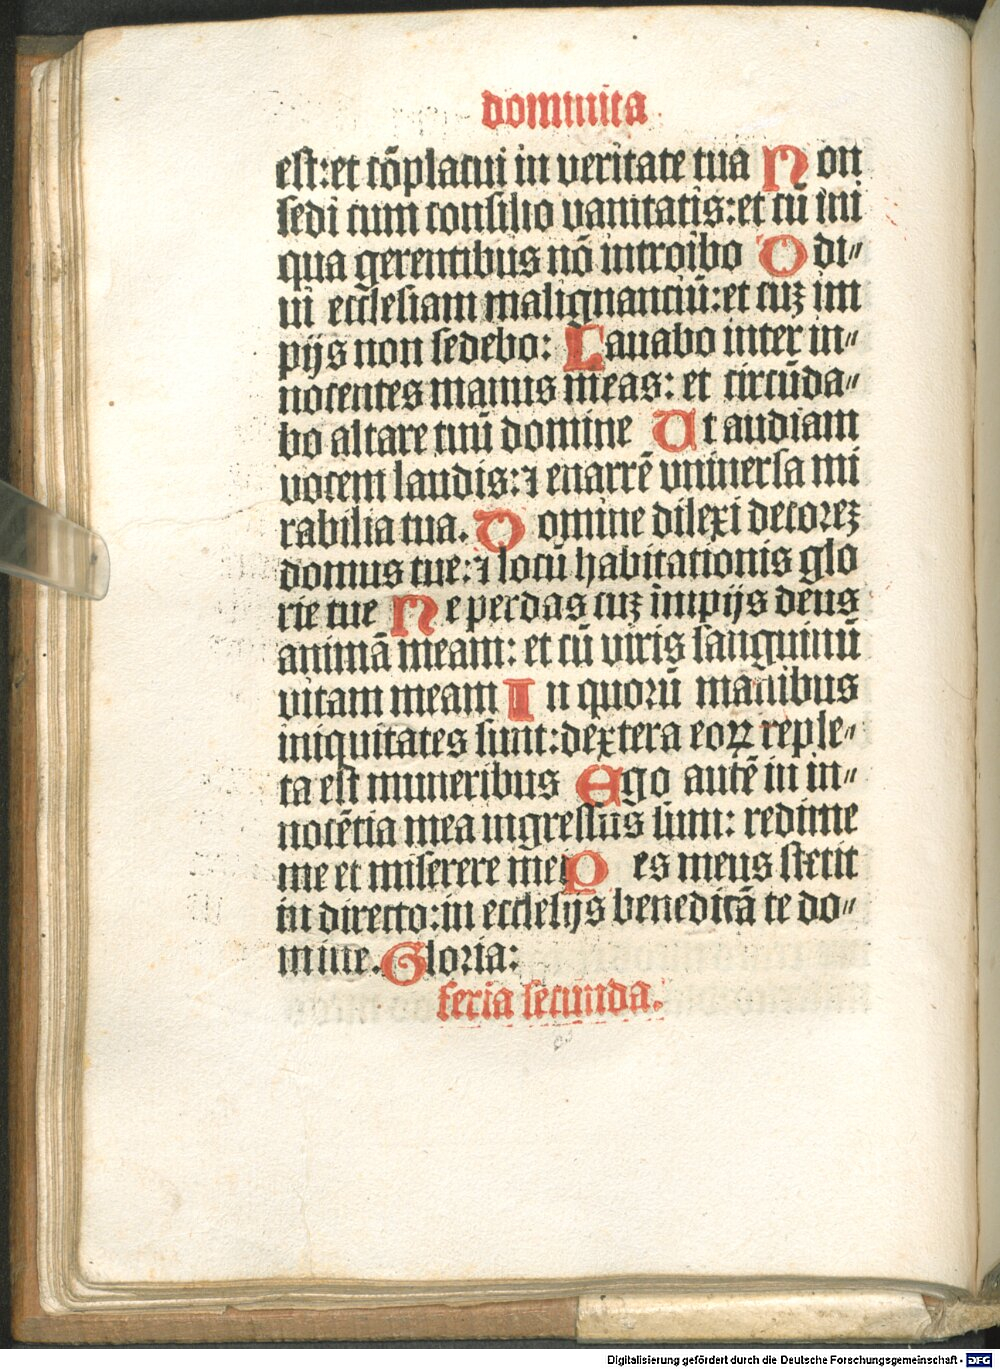 dominica
est:et cõplacui in veritate tua Non
sedi cum consilio vanitatis:et cũ ini
qua gerentibus nõ introibo Odi⸗
ui ecclesiam malignanciũ:et cuꝫ im
pijs non sedebo: Lauabo inter in⸗
nocentes manus meas: et circũda⸗
bo altare tuũ domine Ut audiam
vocem laudis:⁊ enarrẽ vniuersa mi
rabilia tua. Domine dilexi decoreꝫ
domus tue:⁊ locũ habitationis glo
rie tue Ne perdas cuꝫ impijs deus
animã meam: et cũ viris sanguinũ
vitam meam In quorũ manibus
iniquitates sunt:dextera eoꝝ reple⸗
ta est muneribus Ego autẽ in in⸗
nocẽtia mea ingressus sum: redime
me et miserere mei Pes meus stetit
in directo:in ecclesijs benedicã te do⸗
mine. Gloria:
feria secunda.
Digitalisierung gefördert durch die Deutsche Forschungsgemeinschaft - DFG